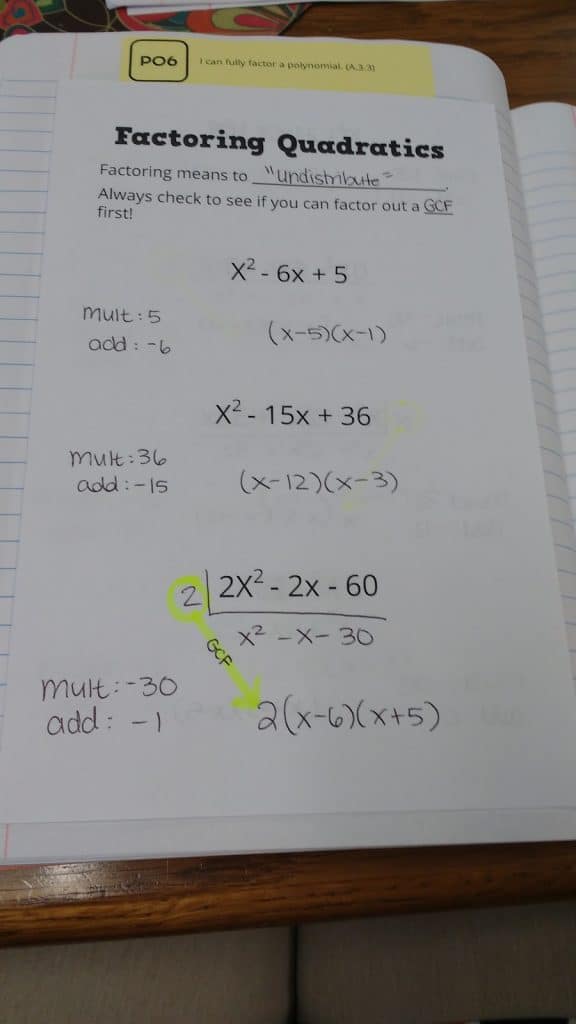 PO6
I can fully factor a polynomial. (A.3.3)
Factoring Quadratics
Factoring means to "undistribute".
Always check to see if you can factor out a GCF
first!
X² - 6x + 5
mult: 5
add: -6
(x-5)(x-1)
X² - 15x + 36
mult: 36
add: -15
(x-12)(x-3)
2 2X² - 2x - 60
x² - x - 30
GCF
mult: -30
add: -1
2(x-6)(x+5)